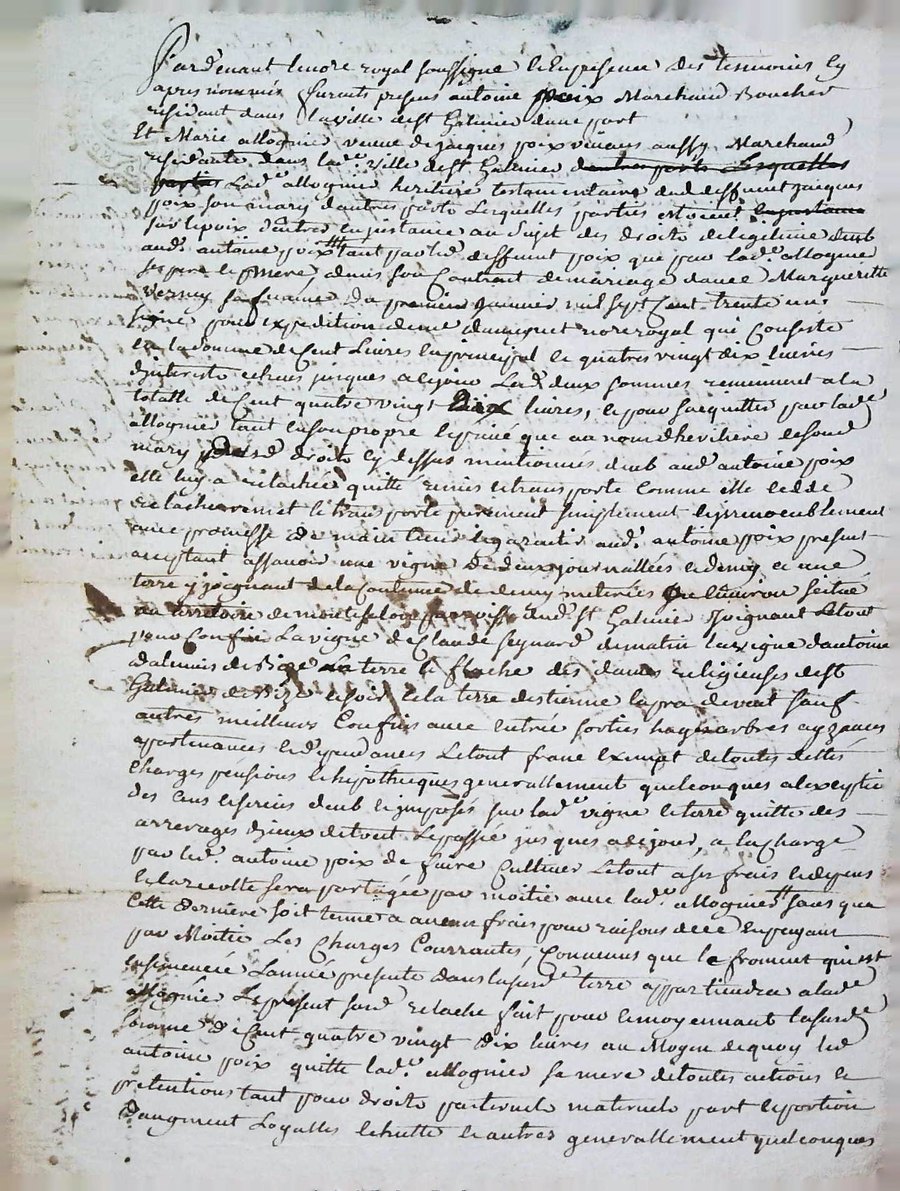 Pardevant le nore royal soussigne et en presence des temoins cy
apres nommés furents presens antoine poix Marchand Boucher
residant dans la ville de st Galmier d'une part
Et Marie allognier veuve de jacques poix vivant aussy Marchand
residante dans lade ville de st Galmier d'autre parts Lesquelles
parties Lade allognier heritiere testamentaire dud deffunt jacques
poix son mary d'autres parts Lesquelles parties etoient en instance
sur le poix d'entrer en instance au sujet des droits de legitime deub
aud. antoine poix tant par led deffunt poix que par lade allognier
ses pere et mere dans son Contrat de mariage avec Margueritte
verney sa femme du premier janvier mil sept Cent trente un
signé pour expedition de me nore royal qui Consiste
en la somme de Cent Livres en principal et quatres vingt dix livres
d'interests echeus jusques a ce jour Lesd deux sommes reviennent a la
totalle de Cent quatre vingt Dix livres, et pour s'acquitter par lade
allognier tant en son propre et privé que au nom d'heritiere de sond
mary desd droits cy dessus mentionnes deub aud antoine poix
elle luy a relachée quitté remis et transporte comme elle cedde
relache remet et transporte purement simplement et irrevocablement
avec promesse de maintenir et garantir aud. antoine poix present
acceptant assavoir une vigne de deux journallées et demy et une
terre y joignant de la Contenue de demy meterée ou environ scitué
au territoire de paroisse dud. st Galmier Joignant Letout
pour Confin La vigne de Claude seynard de matin La vigne d'antoine
de Bize La terre et flache des dames religieuses de st
Galmier de Bize et soir et la terre d'estienne de vent sauf
autres meilleurs Confins avec entrée sorties hayes arbres ayzances
apartenances et dependances Letout franc exempt de toutes dettes
charges pensions et hipotheques generallement quelconques a l'exeption
des Cens et servis deub et imposés sur lade vigne et terre quitte des
arrerages d'iceux de tout Le passé jusques a ce jour, a la Charge
par led. antoine poix de faire Cultiver Letout a ses frais et depens
et la recolte sera partagée par moitié avec lade allognier sans que
Cette derniere soit tenue a aucun frais pour raisons de ce en payant
par Moitié Les Charges Courrantes, Convenus que le froment qui est
ensemencé L'année presente dans lasusde terre appartiendra a lade
allognier Le present susd relache fait pour et moyennant lasusde
somme de Cent quatre vingt Dix livres au Moyen de quoy led
antoine poix quitte lade. allognier sa mere de toutes actions et
pretentions tant pour droits paternels maternels part et portion
d'augment Legalles et autres generallement quelconques